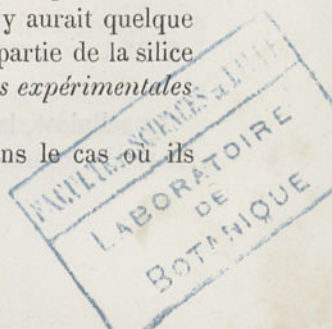 y aurait quelque
partie de la silice
s expérimentales
ns le cas où ils
FACULTÉ DES SCIENCES DE
LABORATOIRE
DE
BOTANIQUE